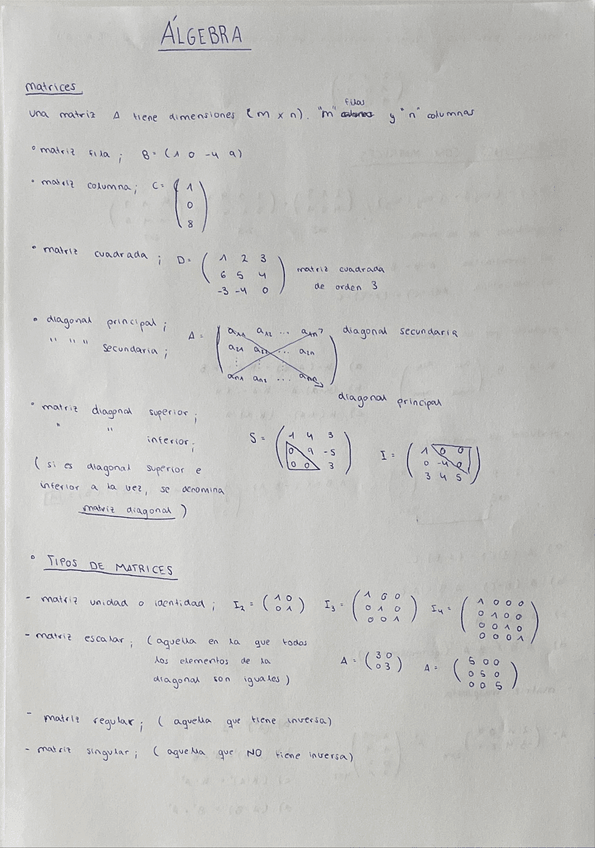 ÁLGEBRA
matrices
una matriz A tiene dimensiones (m x n). "m" filas y "n" columnas
° matriz fila; B= (1 0 -4 9)
° matriz columna; C= (1
0
8)
° matriz cuadrada; D= ( 1 2 3
6 5 4
-3 -4 0 ) matriz cuadrada
de orden 3
° diagonal principal; A= ( a11 a12 ... a1n ) diagonal secundaria
" " " secundaria; a21 a22 ... a2n
: :
an1 an2 ... ann
diagonal principal
° matriz diagonal superior;
" " inferior;
S = ( 1 4 3
0 9 -5
0 0 3 )
I = ( 1 0 0
0 -4 0
3 4 5 )
(si es diagonal superior e
inferior a la vez, se denomina
matriz diagonal)
° TIPOS DE MATRICES
- matriz unidad o identidad; I2 = ( 1 0
0 1 )
I3 = ( 1 0 0
0 1 0
0 0 1 )
I4 = ( 1 0 0 0
0 1 0 0
0 0 1 0
0 0 0 1 )
- matriz escalar; (aquella en la que todos
los elementos de la
diagonal son iguales)
A = ( 3 0
0 3 )
A = ( 5 0 0
0 5 0
0 0 5 )
- matriz regular; (aquella que tiene inversa)
- matriz singular; (aquella que NO tiene inversa)